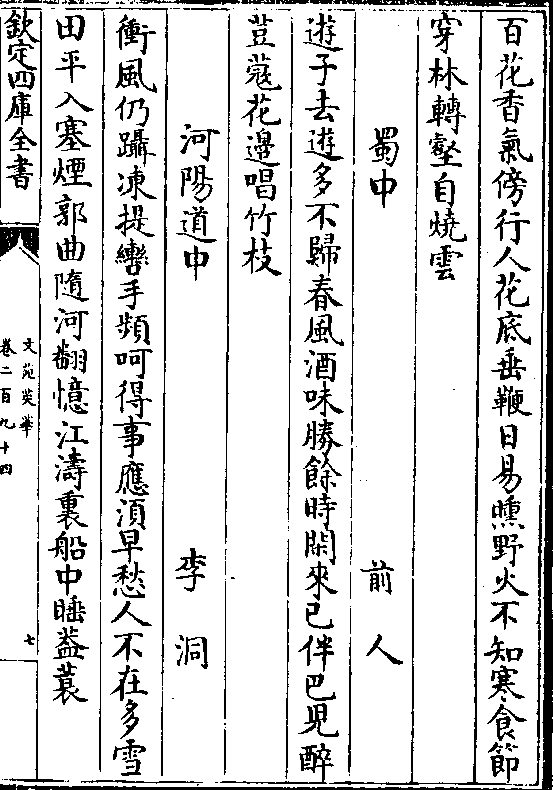 百花香氣傍行人花底垂鞭日易曛野火不知寒食節
穿林轉壑自燒雲
蜀中　前人
遊子去遊多不歸春風酒味勝餘時閑來已伴巴兒醉
荳蔻花邊唱竹枝
河陽道中　李洞
衝風仍躡凍提轡手頻呵得事應須早愁人不在多雪
田平入塞煙郭曲隨河翻憶江濤裏船中睡葢蓑
欽定四庫全書
文苑英華
卷二百九十四
七